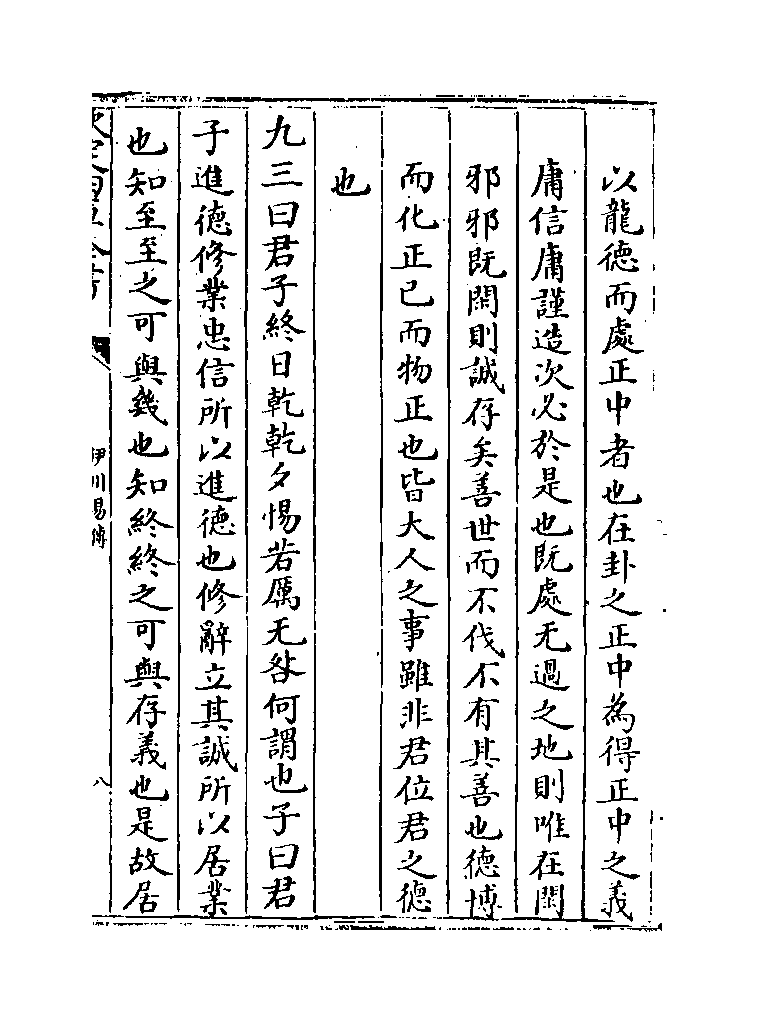 以龍德而處正中者也在卦之正中為得正中之義
庸信庸謹造次必於是也既處无過之地則唯在閑
邪邪既閑則誠存矣善世而不伐不有其善也德博
而化正已而物正也皆大人之事雖非君位君之德
也
九三曰君子終日乾乾夕惕若厲无咎何謂也子曰君
子進德修業忠信所以進德也修辭立其誠所以居業
也知至至之可與幾也知終終之可與存義也是故居
欽定四庫全書
伊川易傳
八